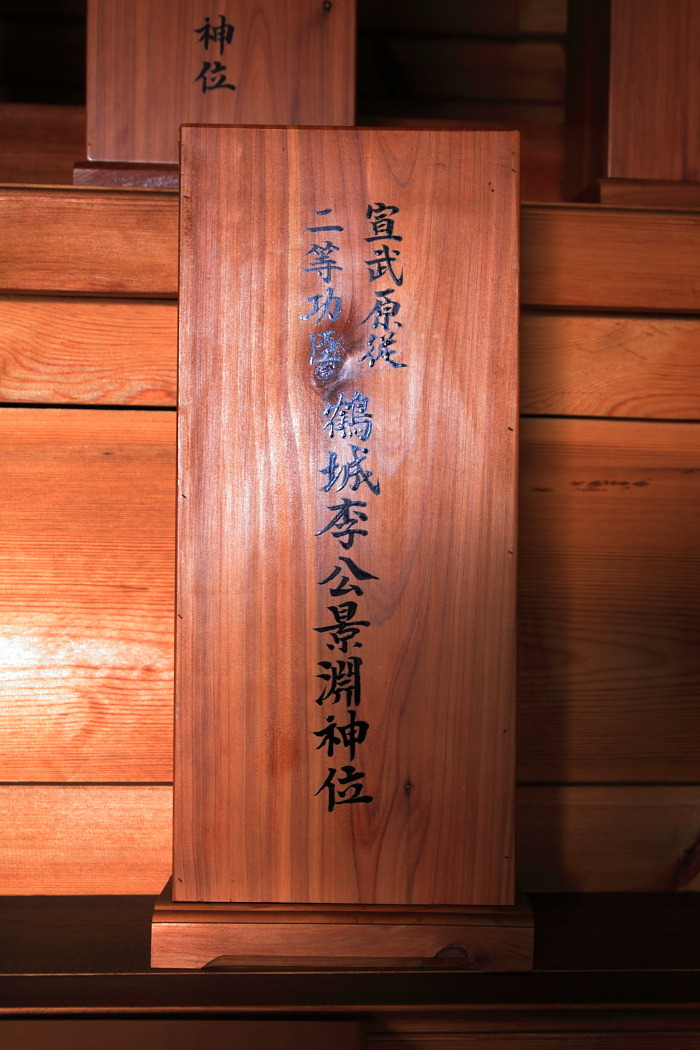 神位
宣武原從
二等功臣
鶴城李公景淵神位